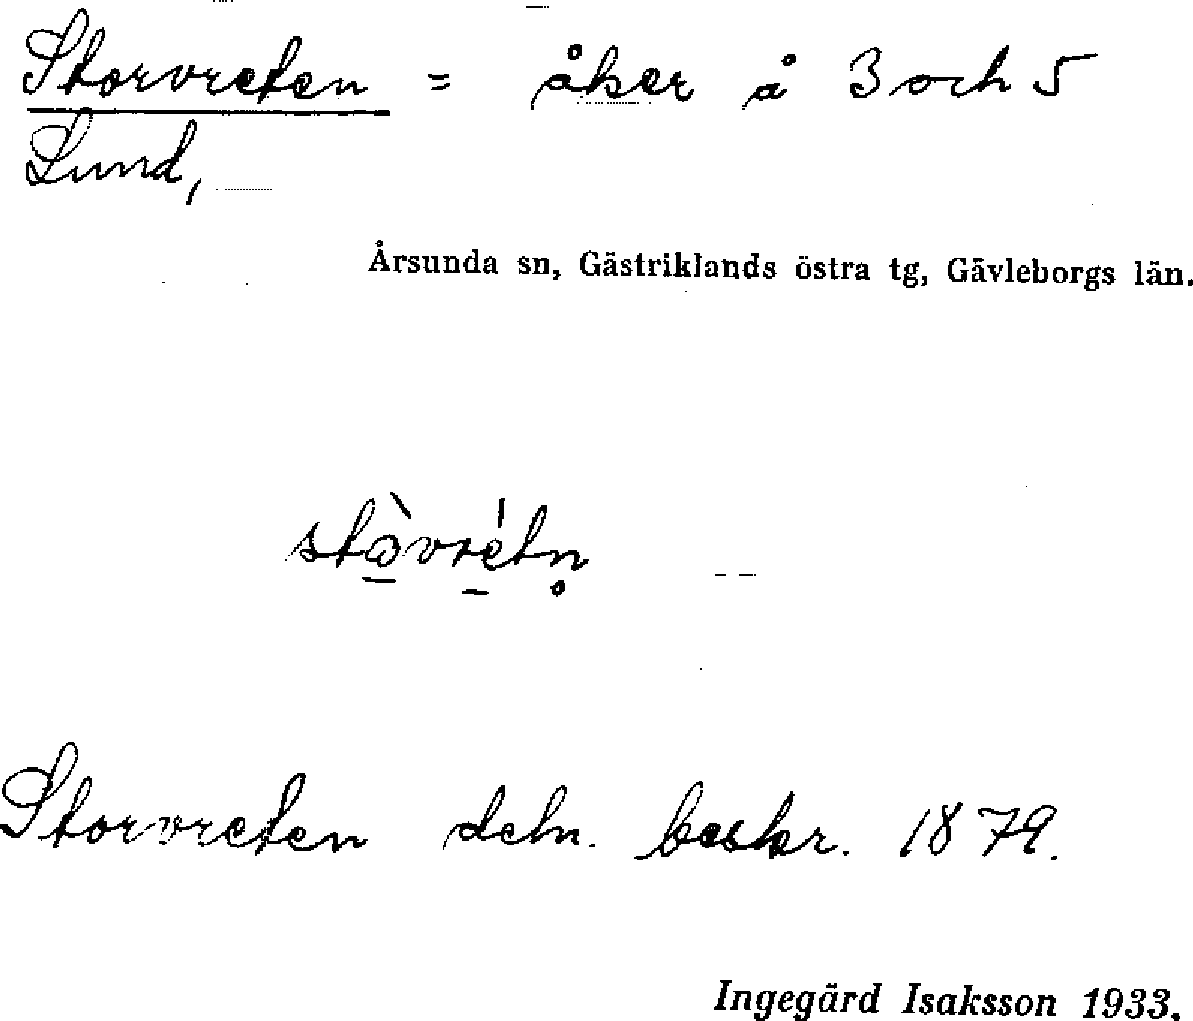 Storvreten = åker å 3 och 5
Lund,
Årsunda sn, Gästriklands östra tg, Gävleborgs län.
stò̱vré̱tn̥
Storvreten deln. beskr. 1879.
Ingegärd Isaksson 1933.